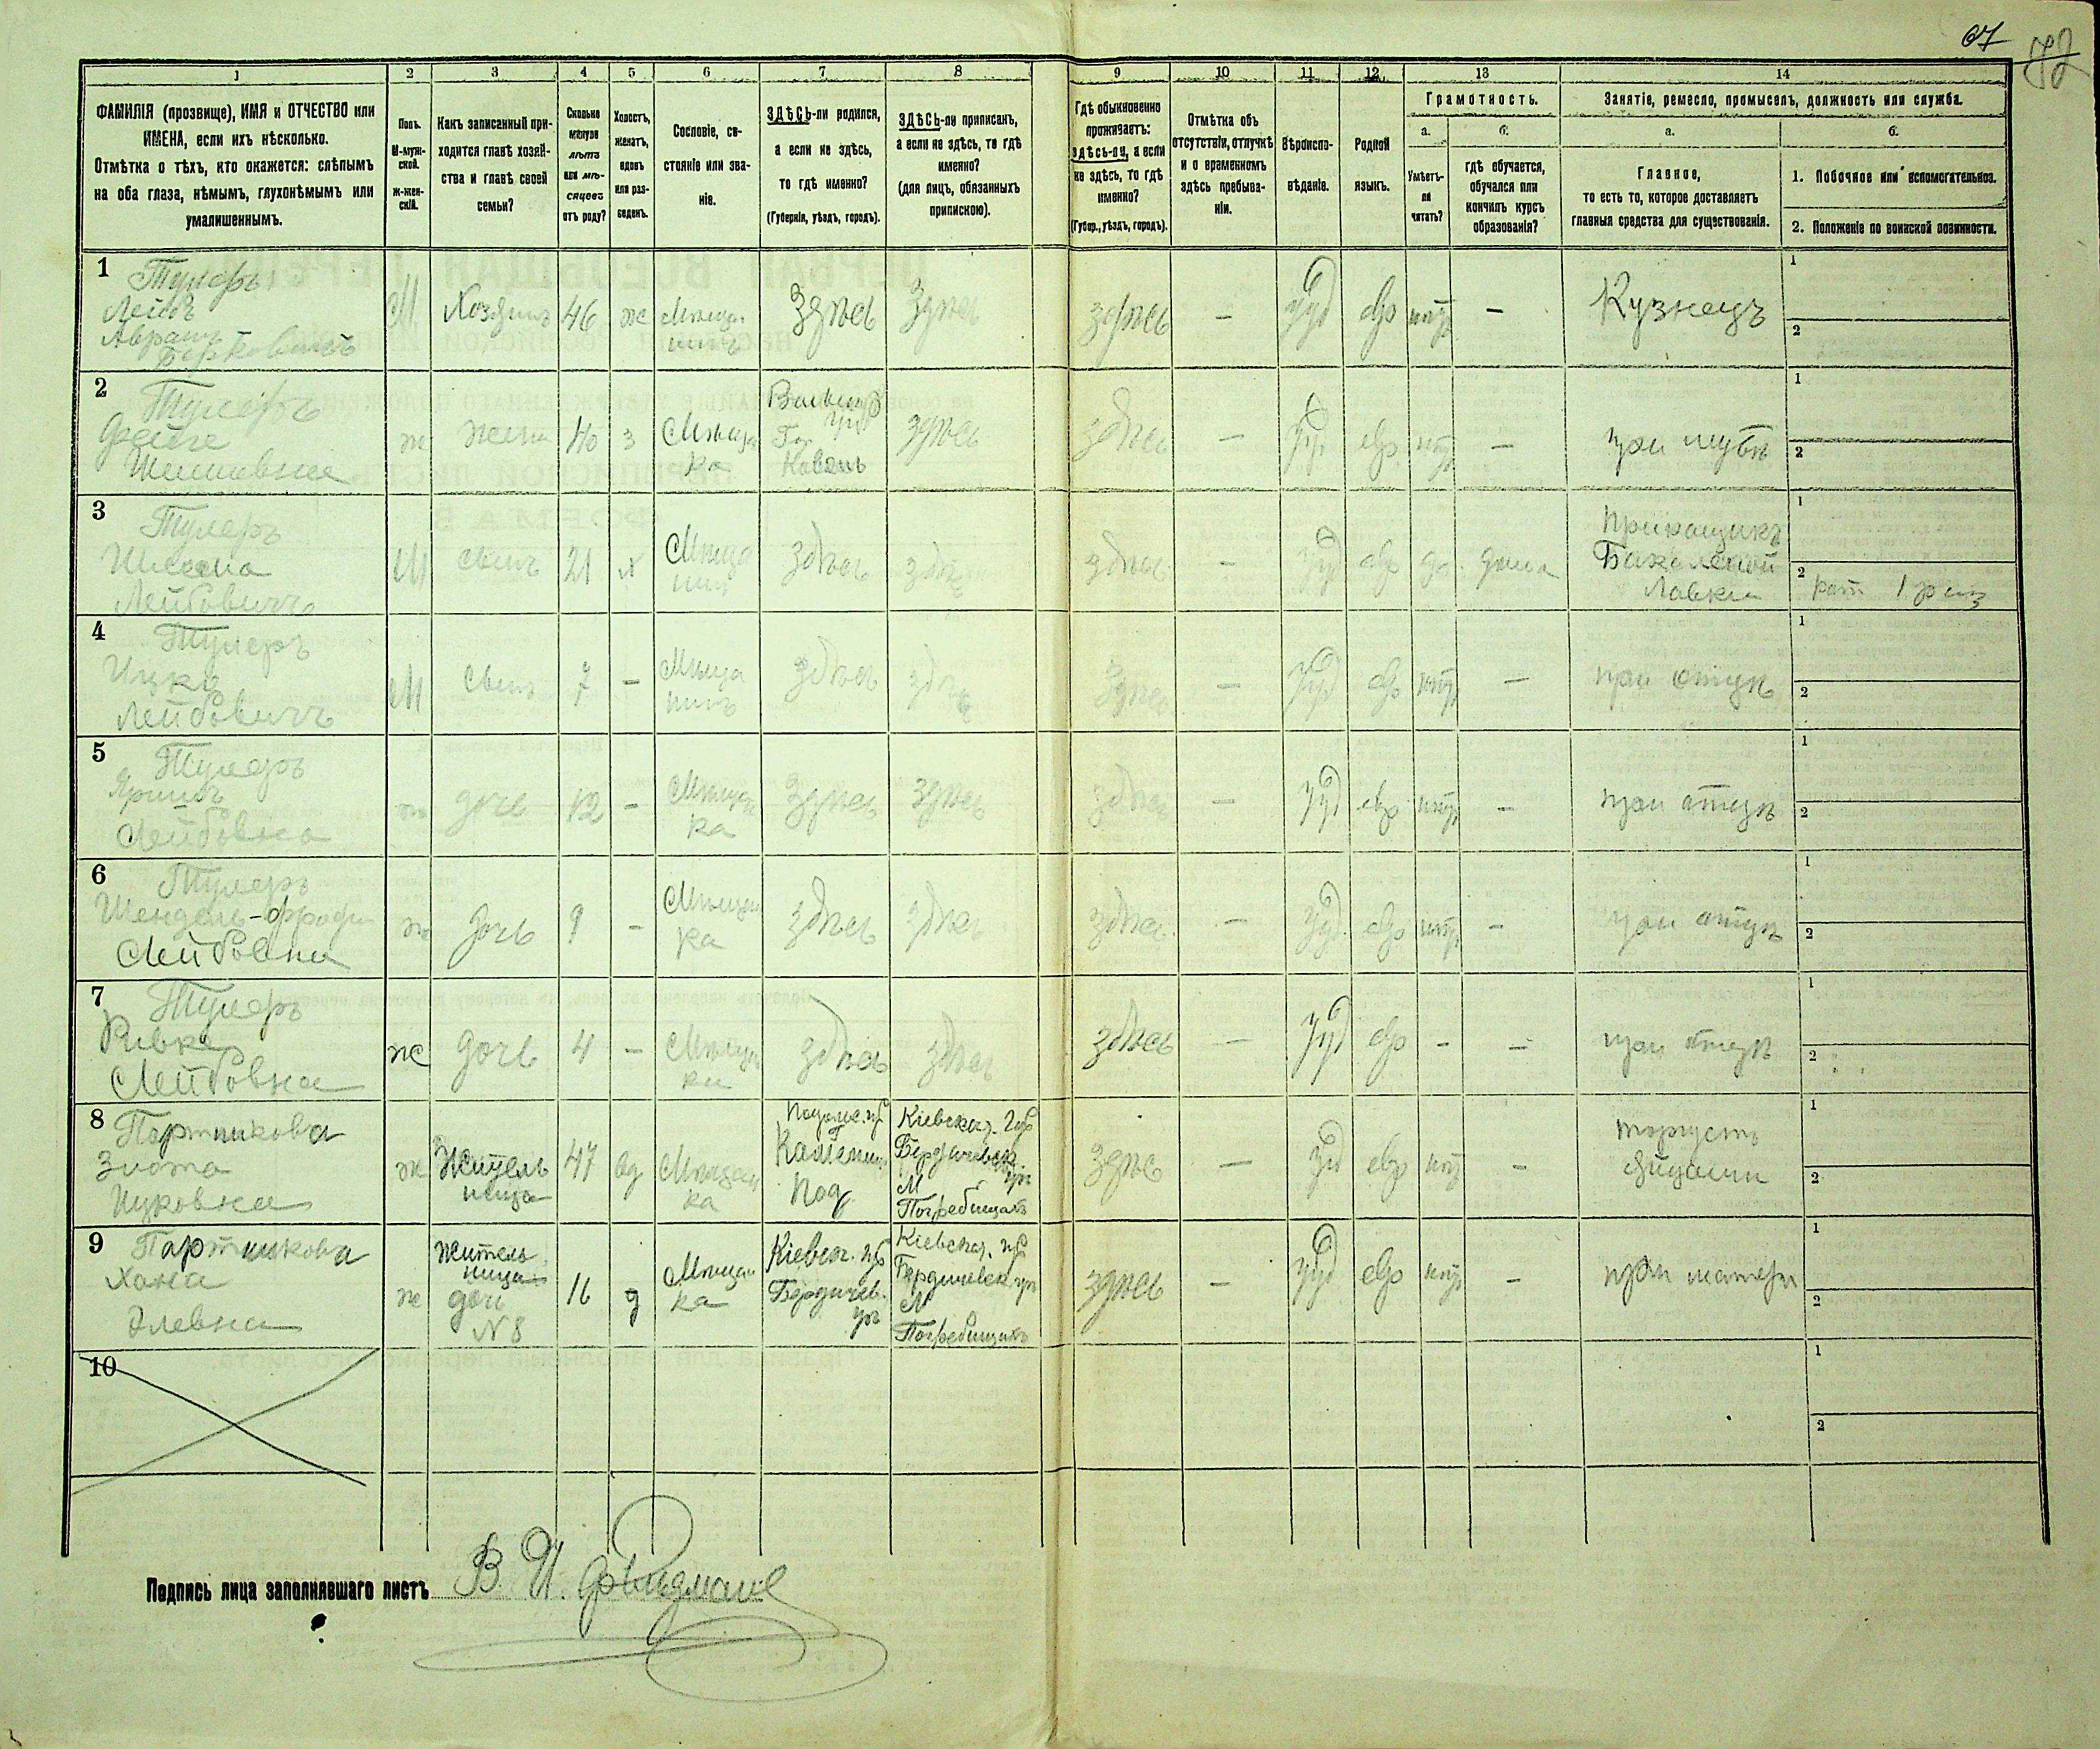 67
72
1 2 3 4 5 6 7 8 9 10 11 12 13 14
ФАМИЛІЯ (прозвище), ИМЯ и ОТЧЕСТВО или
ИМЕНА, если ихъ нѣсколько.
Отмѣтка о тѣхъ, кто окажется: слѣпымъ
на оба глаза, нѣмымъ, глухонѣмымъ или
умалишеннымъ.
Полъ.
М-муж-
ской.
Ж-жен-
скій.
Какъ записанный при-
ходится главѣ хозяй-
ства и главѣ своей
семьи?
Сколько
минуло
лѣтъ
или мѣ-
сяцевъ
отъ роду?
Холостъ,
женатъ,
вдовъ
или раз-
веденъ.
Сословіе, со-
стояніе или зва-
ніе.
ЗДѢСЬ-ли родился,
а если не здѣсь,
то гдѣ именно?
(Губернія, уѣздъ, городъ).
ЗДѢСЬ-ли приписанъ,
а если не здѣсь, то гдѣ
именно?
(для лицъ, обязанныхъ
припискою).
Гдѣ обыкновенно
проживаетъ:
здѣсь-ли, а если
не здѣсь, то гдѣ
именно?
(Губер., уѣздъ, городъ).
Отмѣтка объ
отсутствіи, отлучкѣ
и о временномъ
здѣсь пребыва-
ніи.
Вѣроиспо-
вѣданіе.
Родной
языкъ.
Грамотность.
а.
Умѣетъ-
ли
читать?
б.
гдѣ обучается,
обучался или
кончилъ курсъ
образованія?
Занятіе, ремесло, промыселъ, должность или служба.
а.
Главное,
то есть то, которое доставляетъ
главныя средства для существованія.
б.
1. Побочное или вспомогательное.
2. Положеніе по воинской повинности.
1
Тулеръ
Лейбъ
Аврамъ
Берковичъ
М
Хозяинъ
46
ж
Мѣща-
нинъ
Здѣсь
Здѣсь
здѣсь
-
Іуд
евр
нѣтъ
-
Кузнецъ
1
2
2
Тулеръ
Фейге
Шмилевна
ж
жена
40
з
Мѣщан
ка
Волынск
губ
Гор
Ковель
здѣсь
здѣсь
-
Іуд
евр
нѣтъ
-
при мужѣ
1
2
3
Тулеръ
Лейбовичъ
М
сынъ
21
х
Мѣща
нинъ
здѣсь
здѣсь
здѣсь
-
Іуд
евр
да
дома
Прикащикъ
Бакалейной
Лавки
1
2
4
Тулеръ
Ицко
Лейбовичъ
М
Сынъ
7
-
Мѣща
нинъ
здѣсь
здѣсь
здѣсь
-
Іуд
евр
нѣтъ
-
при отцѣ
1
2
5
Тулеръ
Лейбовна
ж
дочь
12
-
Мѣщан
ка
Здѣсь
здѣсь
здѣсь
-
Іуд
евр
нѣтъ
-
при отцѣ
1
2
6
Тулеръ
Лейбовна
ж
дочь
9
-
Мѣщан
ка
здѣсь
здѣсь
здѣсь
-
Іуд
евр
нѣтъ
-
при отцѣ
1
2
7
Тулеръ
Ривка
Лейбовна
ж
дочь
4
-
Мѣщан
ка
здѣсь
здѣсь
здѣсь
-
Іуд
евр
-
-
при отцѣ
1
2
8
Портникова
Злота
Ицковна
ж
Житель
ница
47
вд
Мѣщан
ка
Подольс. губ
Каменец
Под
Кіевская. Губ
Бердичевск.
уѣз
М
Погребищахъ
здѣсь
-
Іуд
евр
нѣтъ
-
торгуетъ
яйцами
1
2
9
Портникова
Хана
Элевна
ж
житель
ница
дочь
№ 8
16
д
Мѣщан
ка
Кіевск. губ
Бердичев.
уѣз
Кіевская. губ
Бердичевск уѣз
М
Погребищахъ
здѣсь
-
Іуд
евр
нѣтъ
-
при матери
1
2
10
1
2
Подпись лица заполнявшаго листъ